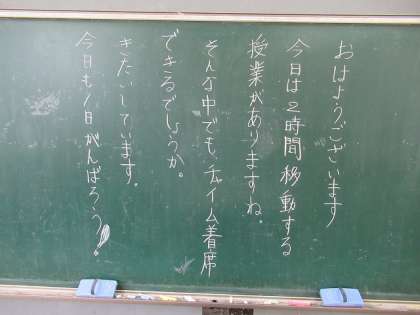 おはようございます
今日は2時間移動する
授業がありますね。
そんな中でも、チャイム着席
できるでしょうか。
きたいしています。
今日も1日がんばろう!